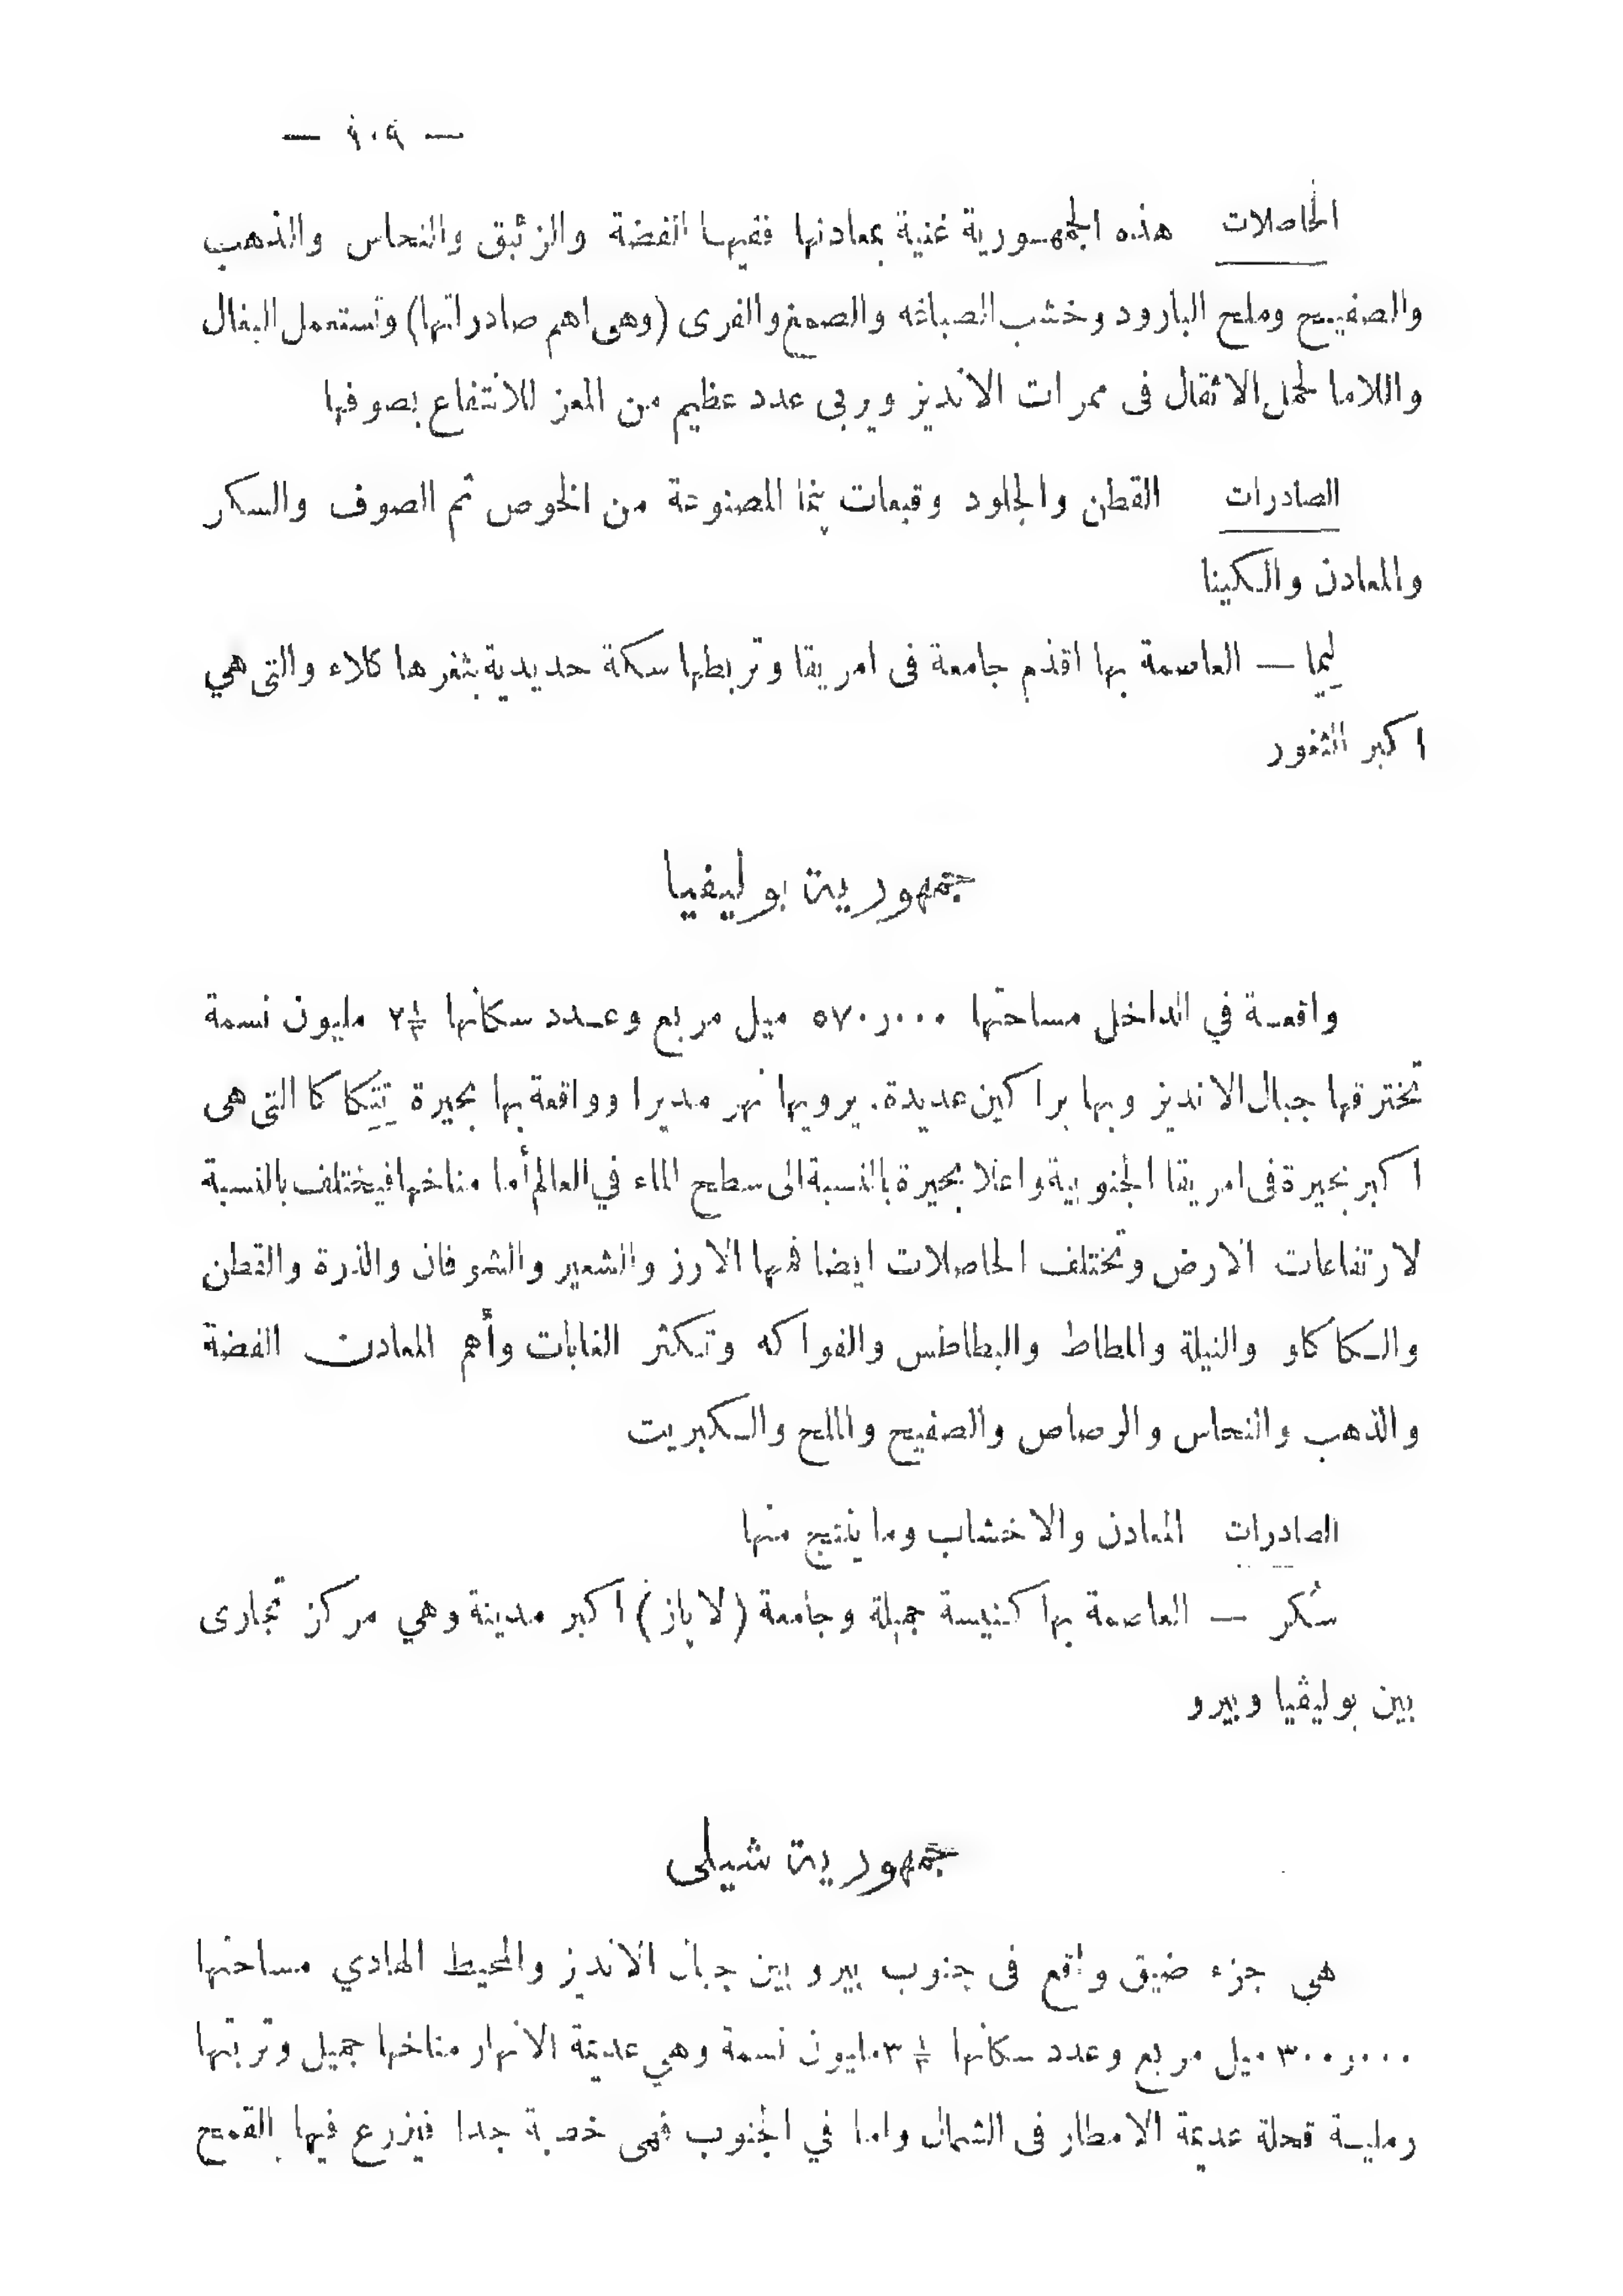 — ١٠٩ —
الحاصلات هذه الجمهورية غنية بمعادنها ففيها الفضة والزئبق والنحاس والذهب
والصفيح وملح البارود وخشب الصباغه والصمغ والفرى (وهى اهم صادراتها) وتستعمل البغال
واللاما لحمل الاثقال فى ممرات الانديز ويربى عدد عظيم من المعز للانتفاع بصوفها
الصادرات القطن والجلود وقبعات پنما المصنوعة من الخوص ثم الصوف والسكر
والمعادن والكينا
ليما — العاصمة بها اقدم جامعة فى امريقا وتربطها سكة حديدية بثغرها كلاء والتى هي
اكبر الثغور
جمهورية بوليفيا
واقعة في الداخل مساحتها ٥٧٠٫٠٠٠ ميل مربع وعدد سكانها ٢½ مليون نسمة
تخترقها جبال الانديز وبها براكين عديدة. يرويها نهر مديرا وواقعة بها بحيرة تِتِكاكا التى هى
اكبر بحيرة فى امريقا الجنوبية واعلا بحيرة بالنسبة الى سطح الماء في العالم أما مناخها فيختلف بالنسبة
لارتفاعات الارض وتختلف الحاصلات ايضا فمنها الارز والشعير والشوفان والذرة والقطن
والكاكاو والنيلة والمطاط والبطاطس والفواكه وتكثر الغابات وأهم المعادن الفضة
والذهب والنحاس والرصاص والصفيح والملح والكبريت
الصادرات المعادن والاخشاب وما ينتج منها
سُكر — العاصمة بها كنيسة جميلة وجامعة (لاپاز) اكبر مدينة وهي مركز تجارى
بين بوليڤيا وبيرو
جمهورية شيلى
هي جزء ضيق واقع فى جنوب بيرو بين جبال الانديز والمحيط الهادي مساحتها
٣٠٠٫٠٠٠ ميل مربع وعدد سكانها ٣½ مليون نسمة وهي عديمة الانهار مناخها جميل وتربتها
رملية قحلة عديمة الامطار فى الشمال واما في الجنوب فهى خصبة جدا فيزرع فيها القمح